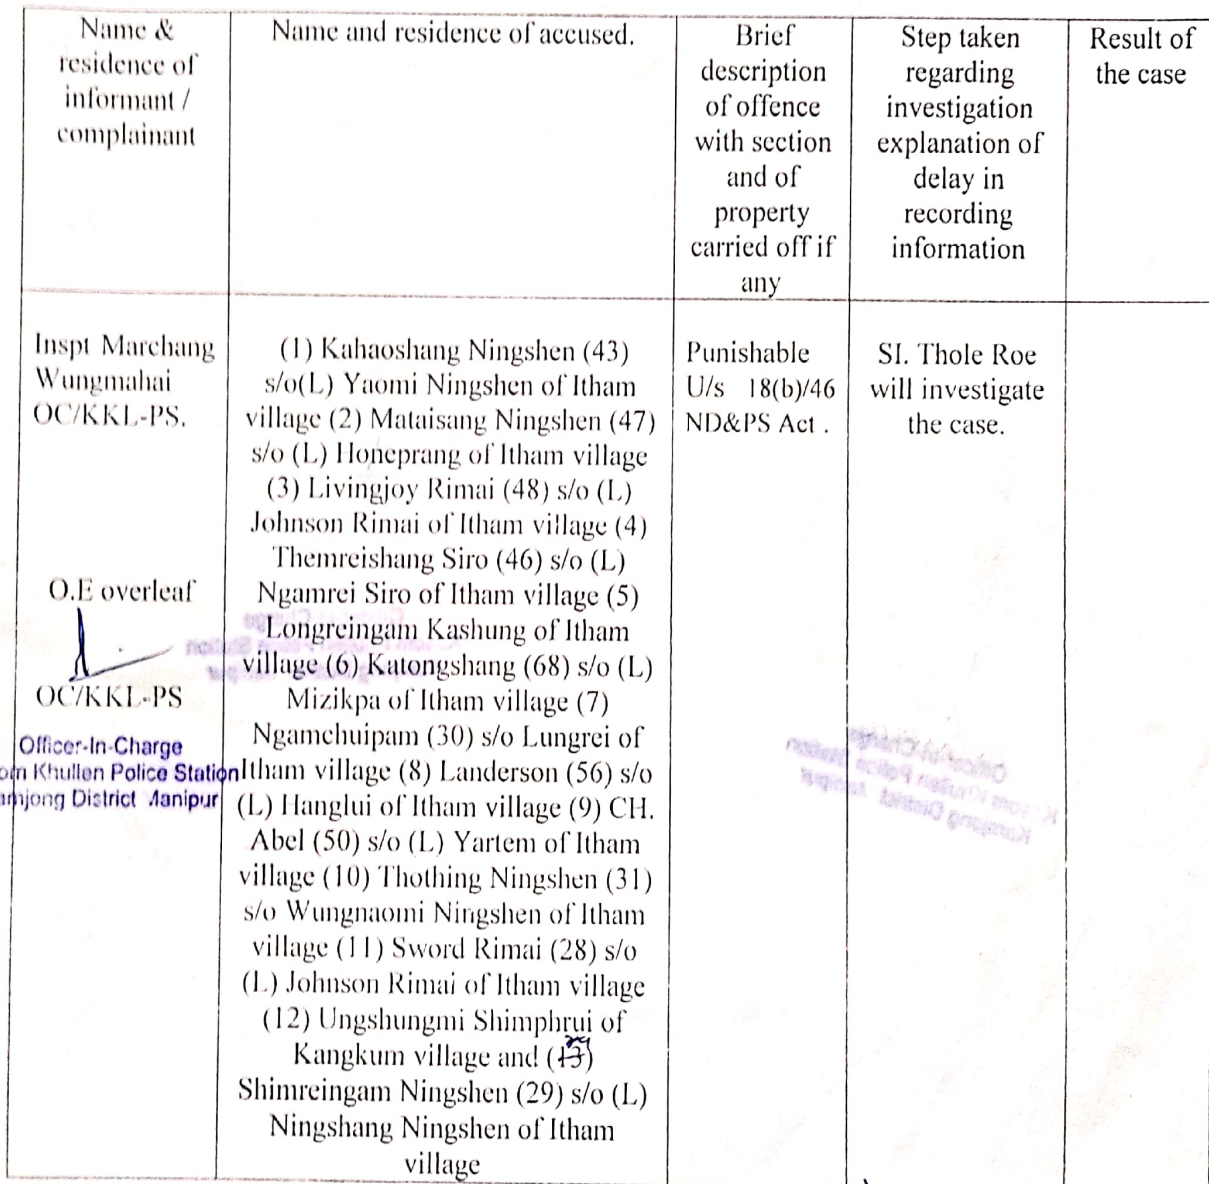 Name &
residence of
informant /
complainant
Name and residence of accused.
Brief
description
of offence
with section
and of
property
carried off if
any
Step taken
regarding
investigation
explanation of
delay in
recording
information
Result of
the case
Inspt Marchang
Wungmahai
OC/KKL-PS.
O.E overleaf
OC/KKL-PS
Officer-In-Charge
Khullen Police Station
amjong District Manipur
(1) Kahaoshang Ningshen (43)
s/o(L) Yaomi Ningshen of Itham
village (2) Mataisang Ningshen (47)
s/o (L) Honeprang of Itham village
(3) Livingjoy Rimai (48) s/o (L)
Johnson Rimai of Itham village (4)
Themreishang Siro (46) s/o (L)
Ngamrei Siro of Itham village (5)
Longreingam Kashung of Itham
village (6) Katongshang (68) s/o (L)
Mizikpa of Itham village (7)
Ngamchuipam (30) s/o Lungrei of
Itham village (8) Landerson (56) s/o
(L) Hanglui of Itham village (9) CH.
Abel (50) s/o (L) Yartem of Itham
village (10) Thothing Ningshen (31)
s/o Wungnaomi Ningshen of Itham
village (11) Sword Rimai (28) s/o
(L) Johnson Rimai of Itham village
(12) Ungshungmi Shimphrui of
Kangkum village and (13)
Shimreingam Ningshen (29) s/o (L)
Ningshang Ningshen of Itham
village
Punishable
U/s 18(b)/46
ND&PS Act .
SI. Thole Roe
will investigate
the case.
Officer-In-Charge
Khullen Police Station
Kamjong District, Manipur